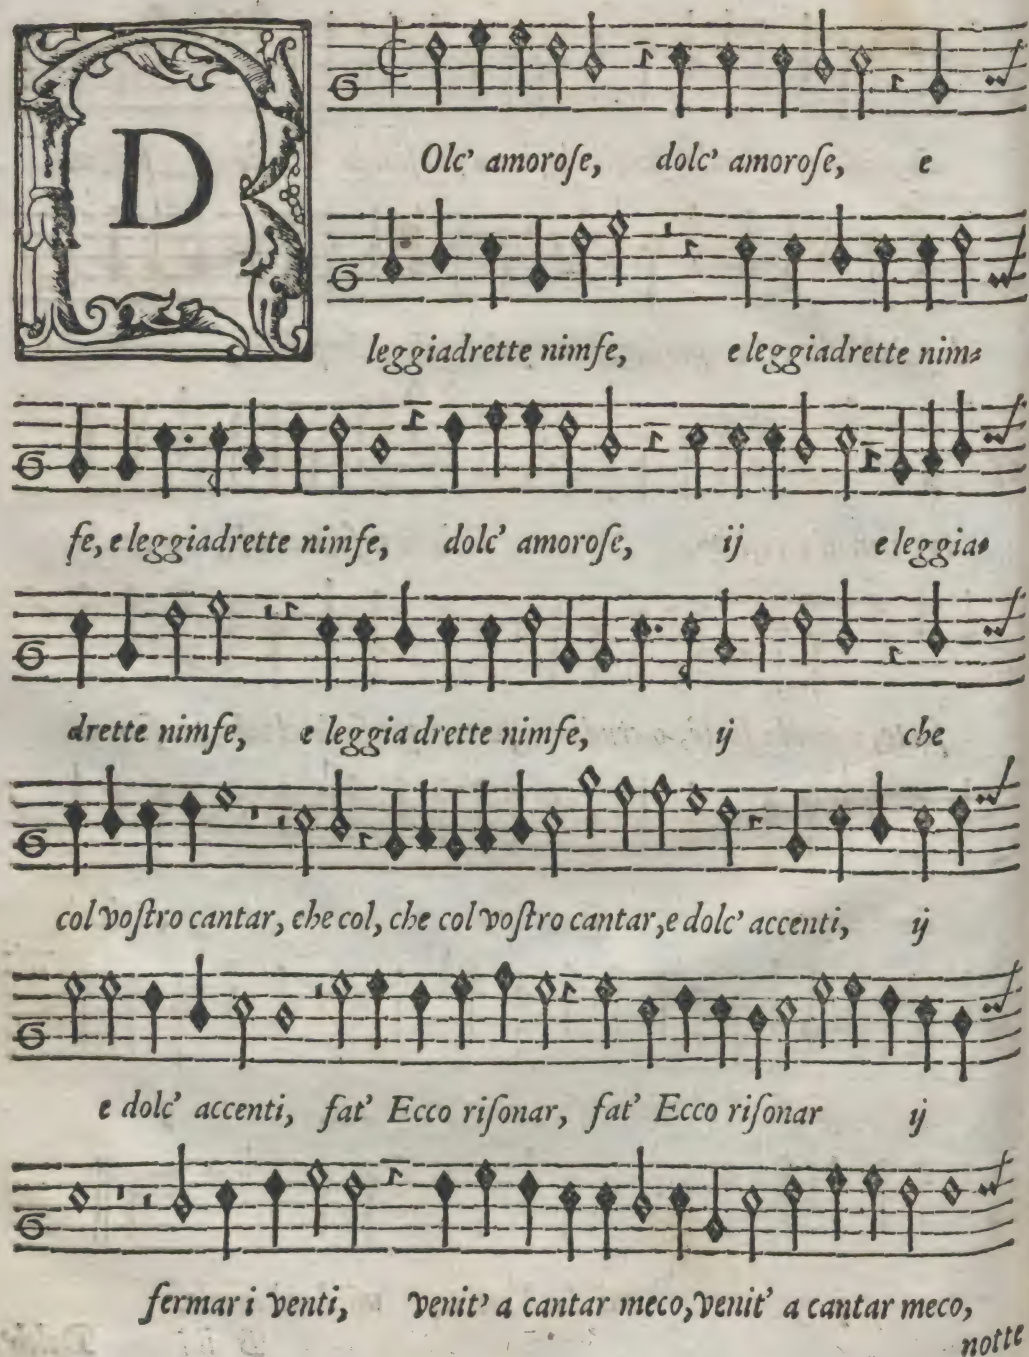 D
Olc' amoroſe, dolc' amoroſe, e
leggiadrette nimfe, e leggiadrette nim-
fe, e leggiadrette nimfe, dolc' amoroſe, ij e leggia-
drette nimfe, e leggiadrette nimfe, ij che
col voſtro cantar, che col, che col voſtro cantar, e dolc' accenti, ij
e dolc' accenti, fat' Ecco riſonar, fat' Ecco riſonar ij
fermar i venti, venit' a cantar meco, venit' a cantar meco,
notte